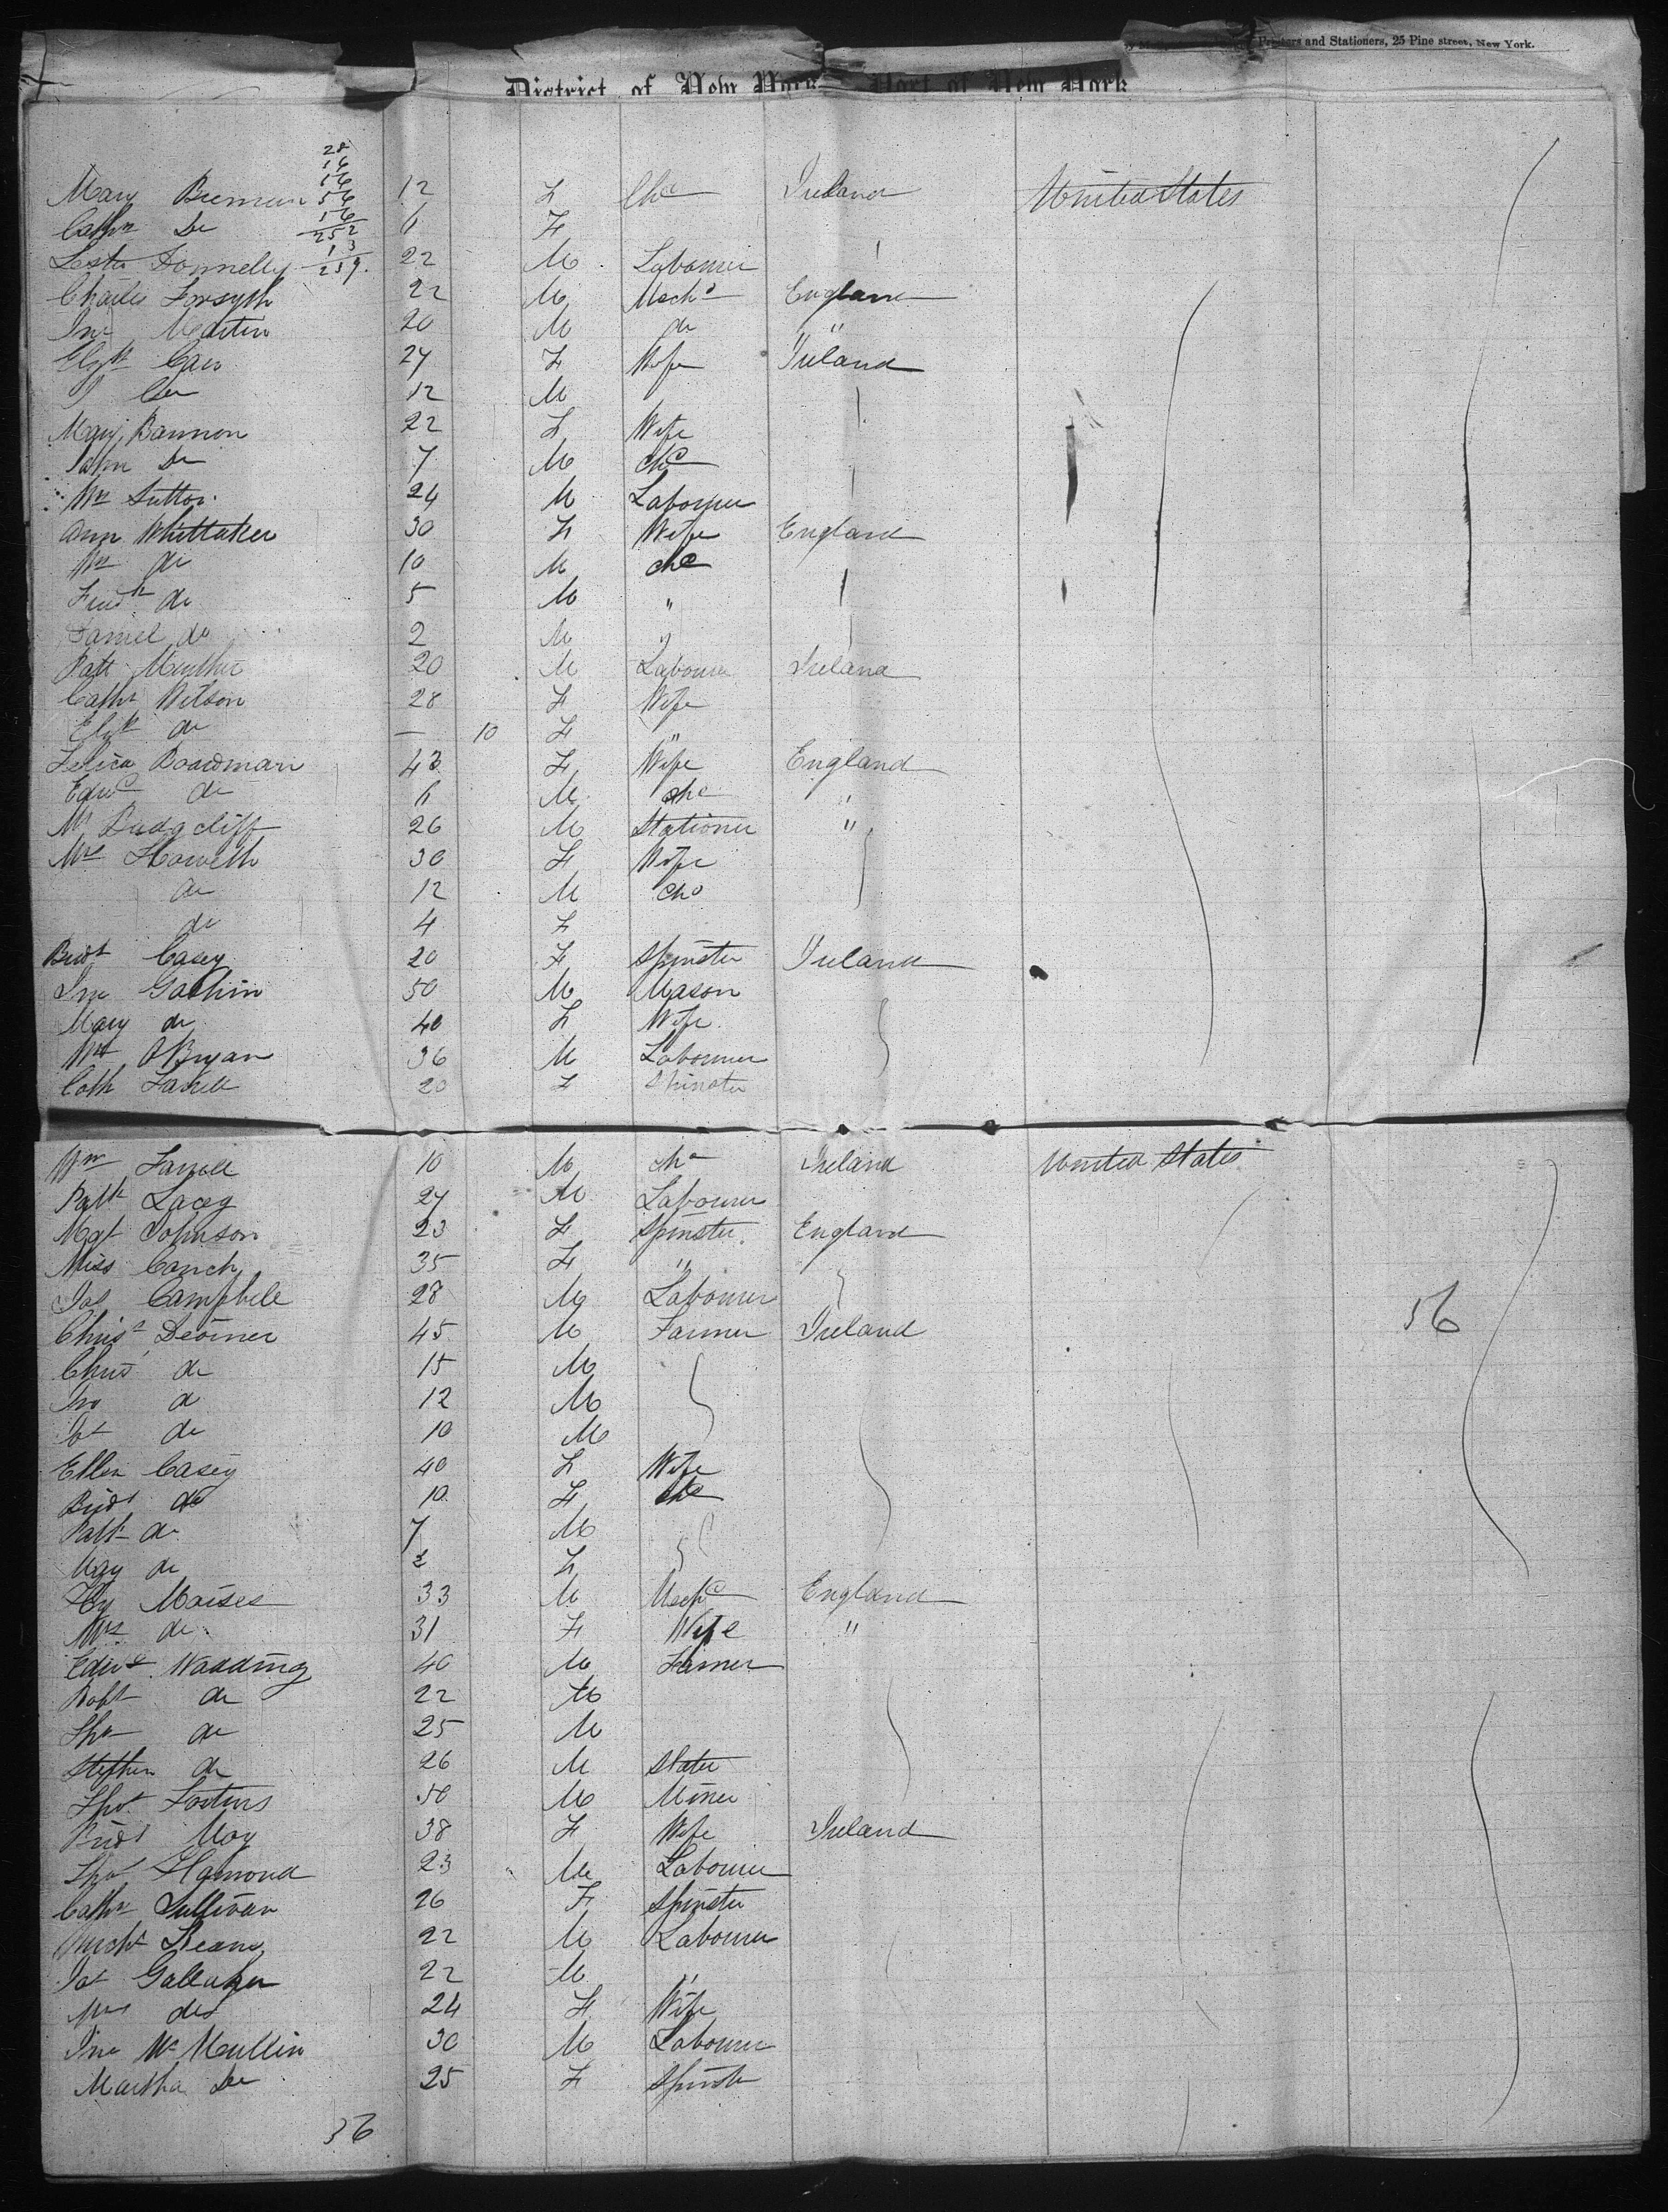 Printers and Stationers, 25 Pine street, New York.
District of New York Port of New York
28
16
16
Mary Brennan 56 12 F Chd Ireland United States
16
Cathn Do 252 6 F
13
Lester Donnelly 259. 22 M Labourer
Charles Forsyth 22 M Mechc England
Jno Martin 20 M do "
Elizth Carr 27 F Wife Ireland
12 M
Mary Bannon 22 F Wife
John Do 7 M Chd
Wm Sutton 24 M Labourer
Ann Whittaker 30 F Wife England
Wm do 10 M chd
Fredk do 5 M "
Daniel do 2 M "
Patt 20 M Labourer Ireland
Cathn Wilson 28 F Wife
Elizth do — 10 F "
Boardman 43 F Wife England
Edwd do 6 M chd "
Mr Radgcliff 26 M Stationer "
Mrs Howeth 30 F Wife
do 12 M chd
do 4 F
Bridt Casey 20 F Spinster Ireland
Jno 50 M Mason
Mary do 40 F Wife
Wm O'Bryan 36 M Labourer
Cath Farrell 20 F Spinster
Wm Farrell 10 M chd Ireland United States
Patk Lacey 27 M Labourer
Mgt Johnson 23 F Spinster England
Miss Couch 35 F "
Jas Campbell 28 M Labourer 56
Chrisr 45 M Farmer Ireland
Chris do 15 M
Jno do 12 M
do 10 M
Ellen Casey 40 F Wife
Bridt do 10 F chd
Patk do 7 M
May do 2 F
Hy Moises 33 M Mechc England
Mrs do 31 F Wife "
Edwd Wadding 40 M Farmer
Robt do 22 M
Thos do 25 M
Stephen do 26 M Slater
Thos 50 M Miner
Bridt May 38 F Wife Ireland
Thos Hamond 23 M Labourer
Cathn Sullivan 26 F Spinster
22 M Labourer
Jas Gallaher 22 M "
Mrs do 24 F Wife
Jno McMullin 30 M Labourer
Martha Do 25 F Spinster
36